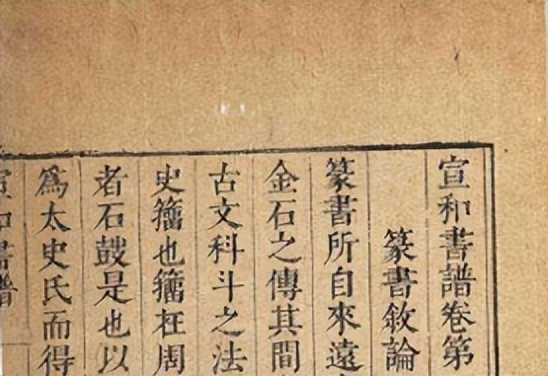 宣和書譜卷第
篆書敘論
篆書所自來遠
金石之傳其間
古文科斗之法
史籀也籀在周
者石鼓是也以
為太史氏而得
宣和書譜